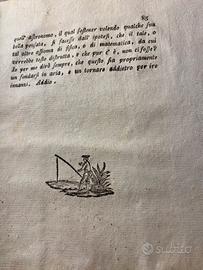 85
quell' astronomo, il qual sostener volendo qualche sua
bella pensata, si facesse dall' ipotesi, che il tale, o
tal altro assioma di fisica, o di matematica, da cui
verrebbe tosto distrutta, è che pur è è, non ci fosse?
Io per me dirò sempre, che questo sia propriamente
un fondarsi in aria, e un tornare addietro per ire
innanzi. Addio.
subito